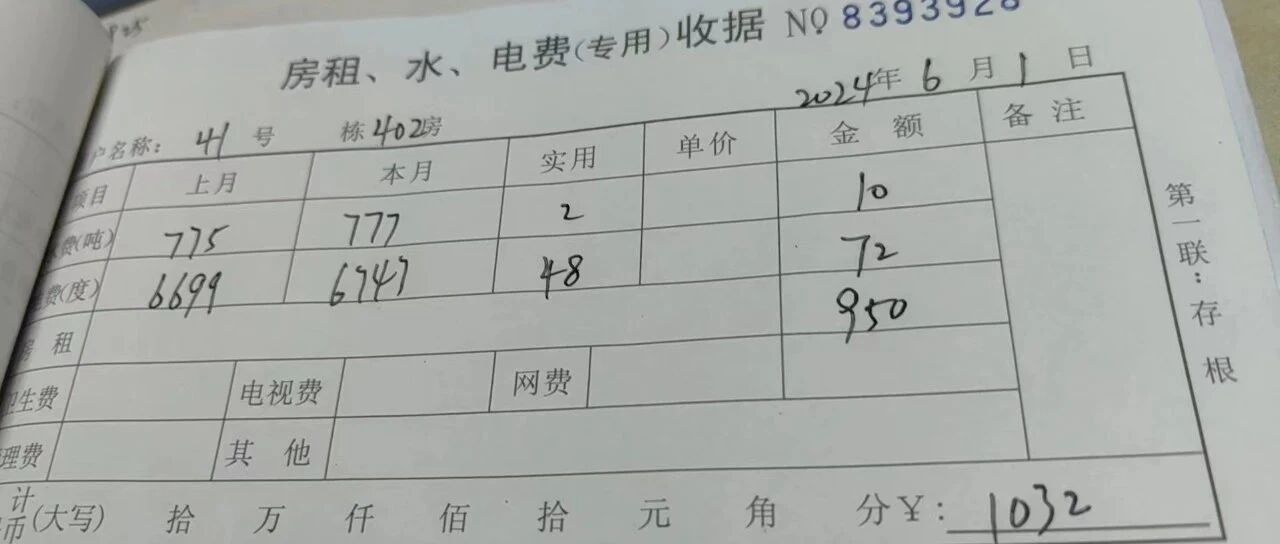 房租、水、电费(专用)收据 NO 8393928
2024年 6 月 1 日
户名称: 41 号 栋402房
项目 上月 本月 实用 单价 金额 备注
费(吨) 775 777 2 10
费(度) 6699 6747 48 72
租 950
卫生费 电视费 网费
理费 其他
计
币(大写) 拾 万 仟 佰 拾 元 角 分¥: 1032
第一联:存根